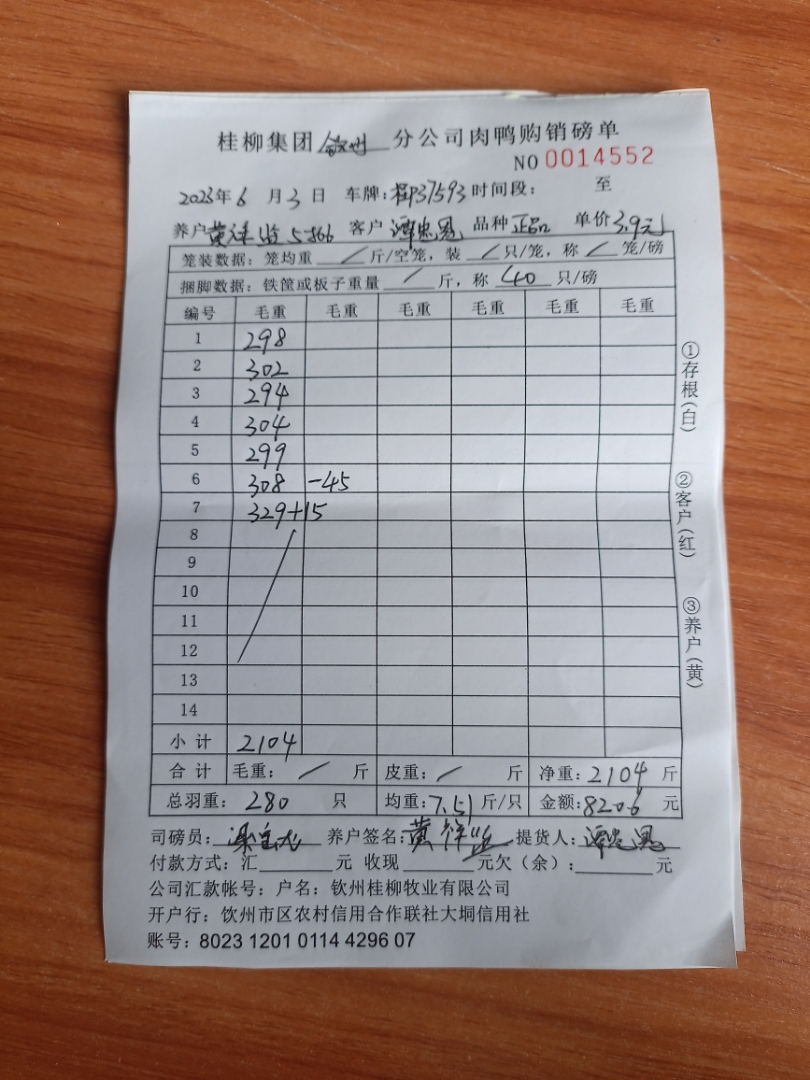 桂柳集团 钦州 分公司肉鸭购销磅单
NO 0014552
2023年6月3日 车牌:桂P37593 时间段: 至
养户 黄祥 5366 客户 谭忠恩 品种 正品 单价 3.9元
笼装数据:笼均重 / 斤/空笼,装 / 只/笼,称 / 笼/磅
捆脚数据:铁筐或板子重量 / 斤,称 40 只/磅
编号 毛重 毛重 毛重 毛重 毛重 毛重
1 298
2 302
3 294
4 304
5 299
6 308 -45
7 329+15
8
9
10
11
12
13
14
小计 2104
合计 毛重: / 斤 皮重: / 斤 净重:2104 斤
总羽重: 280 只 均重:7.51 斤/只 金额:8206 元
司磅员: 养户签名:黄祥 提货人:谭忠恩
付款方式:汇 元 收现 元欠(余): 元
公司汇款帐号:户名:钦州桂柳牧业有限公司
开户行:饮州市区农村信用合作联社大垌信用社
账号:8023 1201 0114 4296 07
①存根(白)
②客户(红)
③养户(黄)